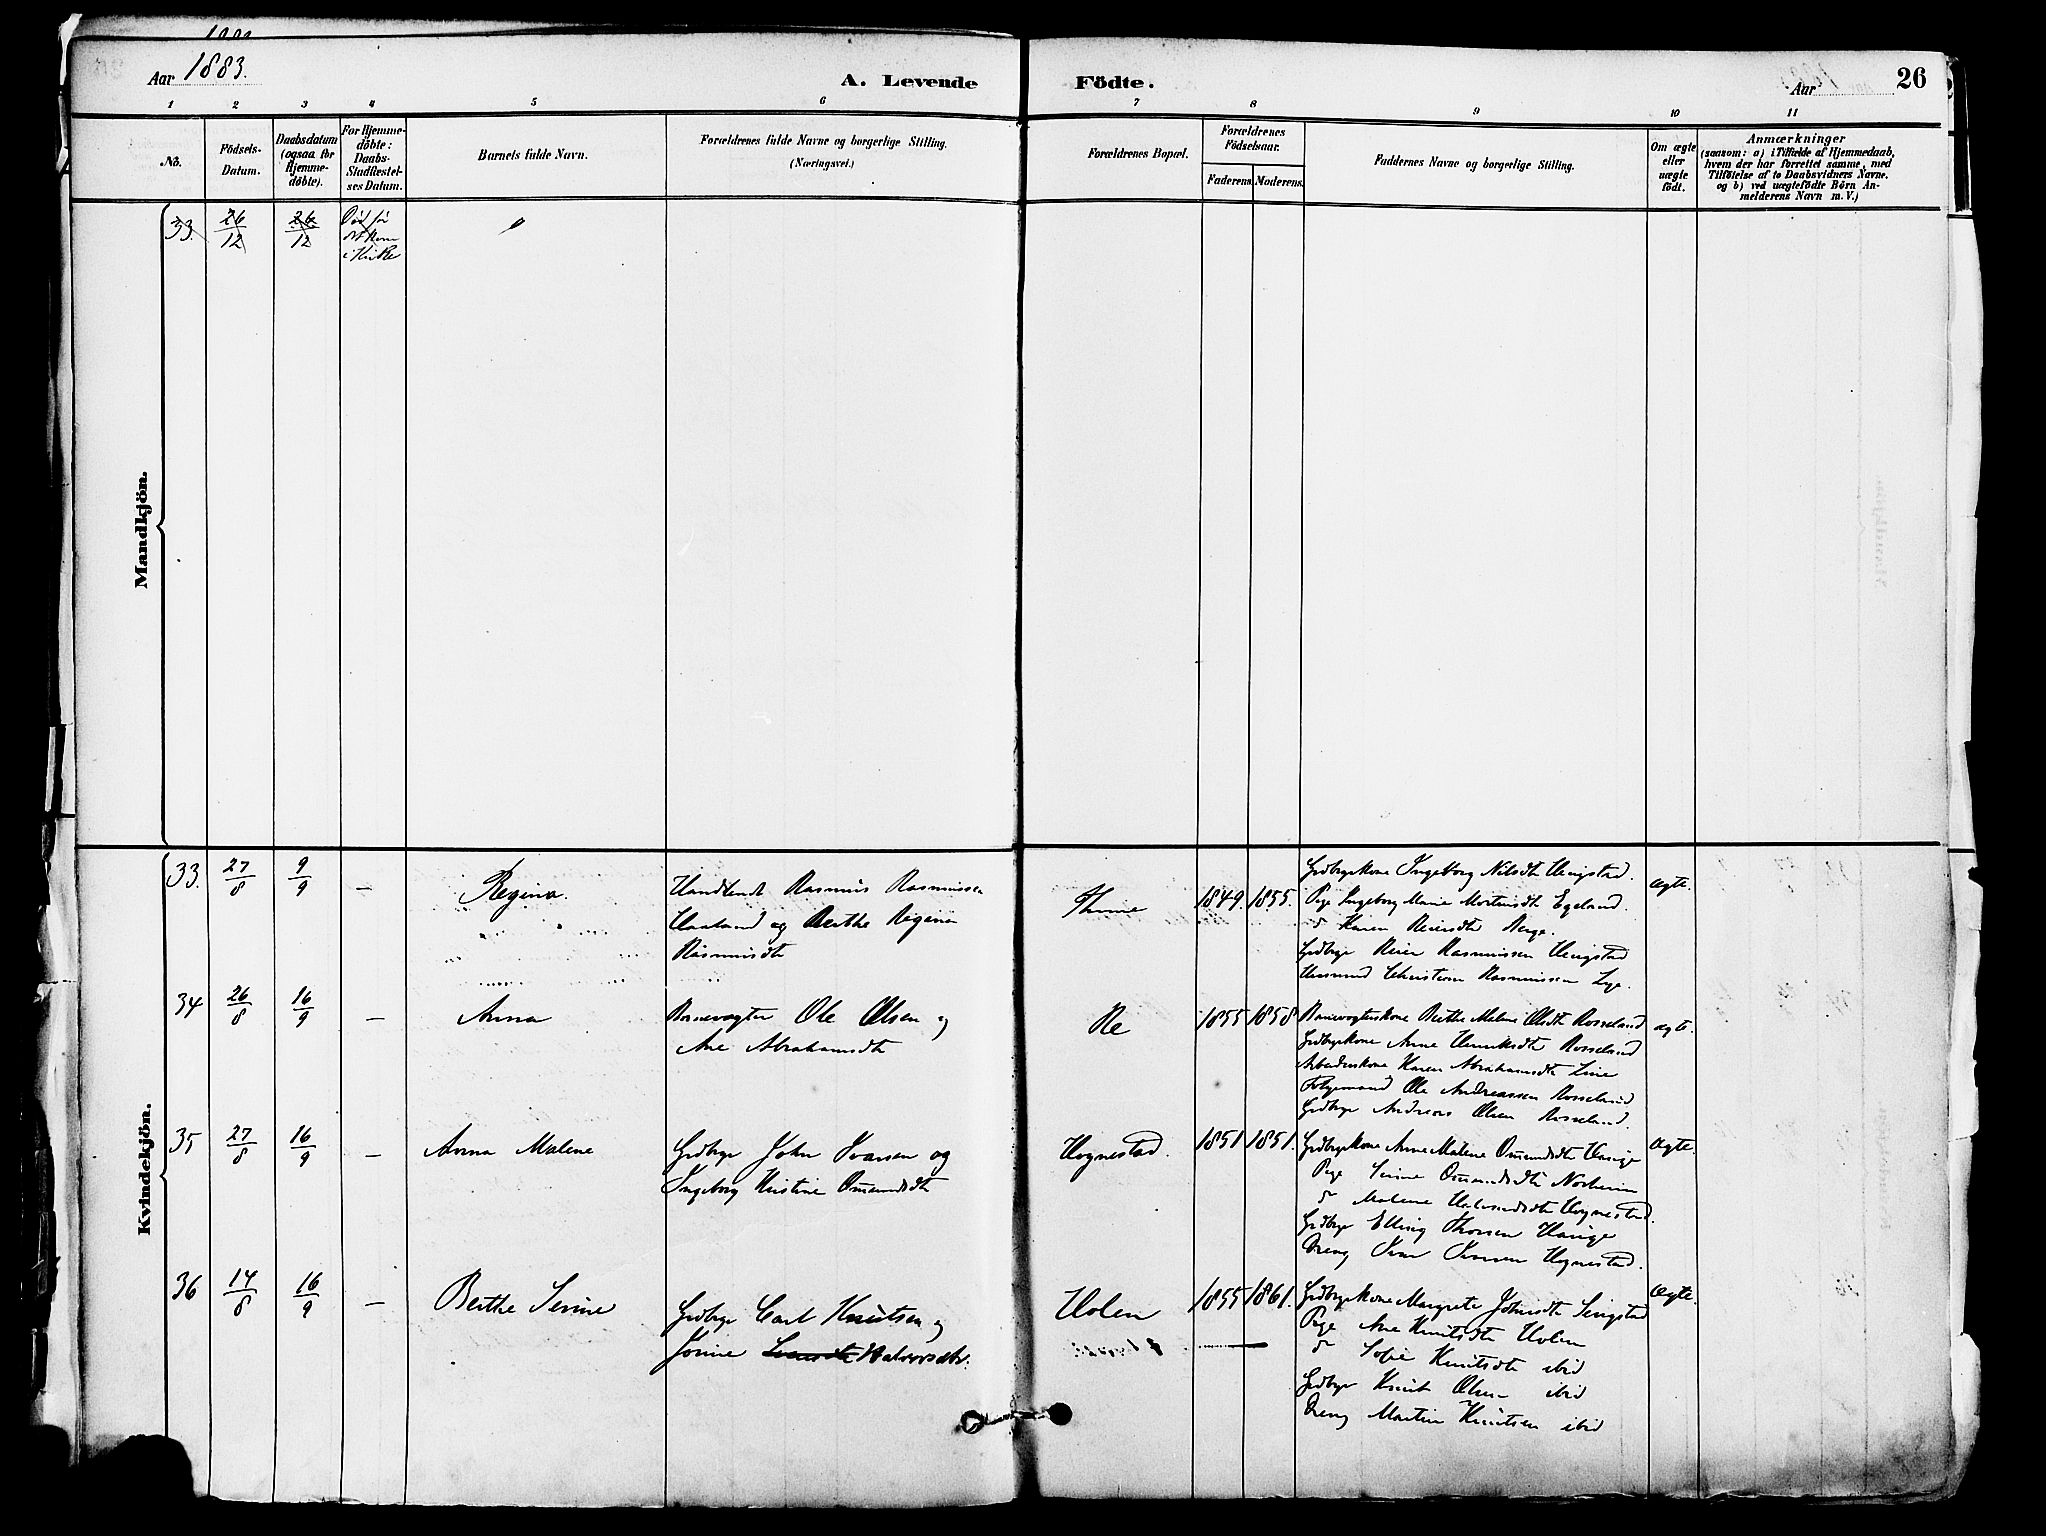 Aar 1883.
A. Levende Födte.
Aar
26
1 2 3 4 5 6 7 8 9 10 11
No.
Födsels-
Datum.
Daabsdatum
(ogsaa for
Hjemme-
döbte).
For Hjemme-
döbte:
Daabs-
Stadfæstel-
ses Datum.
Barnets fulde Navn.
Forældrenes fulde Navne og borgerlige Stilling.
(Næringsvei.)
Forældrenes Bopæl.
Forældrenes
Födselsaar.
Faderens
Moderens.
Faddernes Navne og borgerlige Stilling.
Om ægte
eller
uægte
født.
Anmærkninger
(saasom: a) i Tilfælde af Hjemmedaab,
hvem der har forrettet samme, med
Tilföielse af to Daabsvidners Navne.
og b) ved uægtefödte Börn An-
melderens Navn m. V.)
Mandkjön.
33. 26/12 26/12
Död før
det kom
i Kirke
Kvindekjön.
33. 27/8 9/9 — Regina.
Handlende Rasmus Rasmussen
Haaland og Berthe Regine
Rasmusdtr
Thime 1849. 1855.
Grdbrgerkone Ingeborg Nilsdtr Hengstad.
Pige Ingeborg Marie Mortensdtr Egeland.
do Karen Reiersdtr Berge.
Grdbrgr Reier Rasmussen Hengstad
Huusmand Christian Rasmussen Lye.
ægte.
34 26/8 16/9 — Anna
Banevogter Ole Olsen og
Ane Abrahamsdtr
Re 1855 1858
Banevogterkone Berthe Malene Olsdtr Rosseland
Grdbrgerkone Anne Henriksdtr Rosseland
Arbeiderskone Karen Abrahamsdtr Line
Folgemand Ole Andreassen Rosseland
Grdbrgr Andreas Olsen Rosseland.
ægte.
35 27/8 16/9 — Anna Malene
Grdbrgr John Ivarsen og
Ingeborg Kristine Omundsdtr
Hognestad. 1851 1851.
Grdbrgerkone Anne Malene Omundsdtr Hauge
Pige Serine Omundsdtr Norheim
do Malene Halvorsdtr Hognestad.
Grdbrgr Elling Thorsen Hauge
Dreng Ivar Ivarsen Hognestad.
Ægte.
36 14/8 16/9 — Berthe Serine
Grdbrgr Carl Knutsen og
Jorine Halvorsdtr.
Holen 1855 1861.
Grdbrgerkone Margrete Johnsdtr Serigstad
Pige Ane Knutsdtr Holen
do Sofie Knutsdtr ibid
Grdbrgr Knut Olsen ibid
Dreng Martin Knutsen ibid
Ægte.